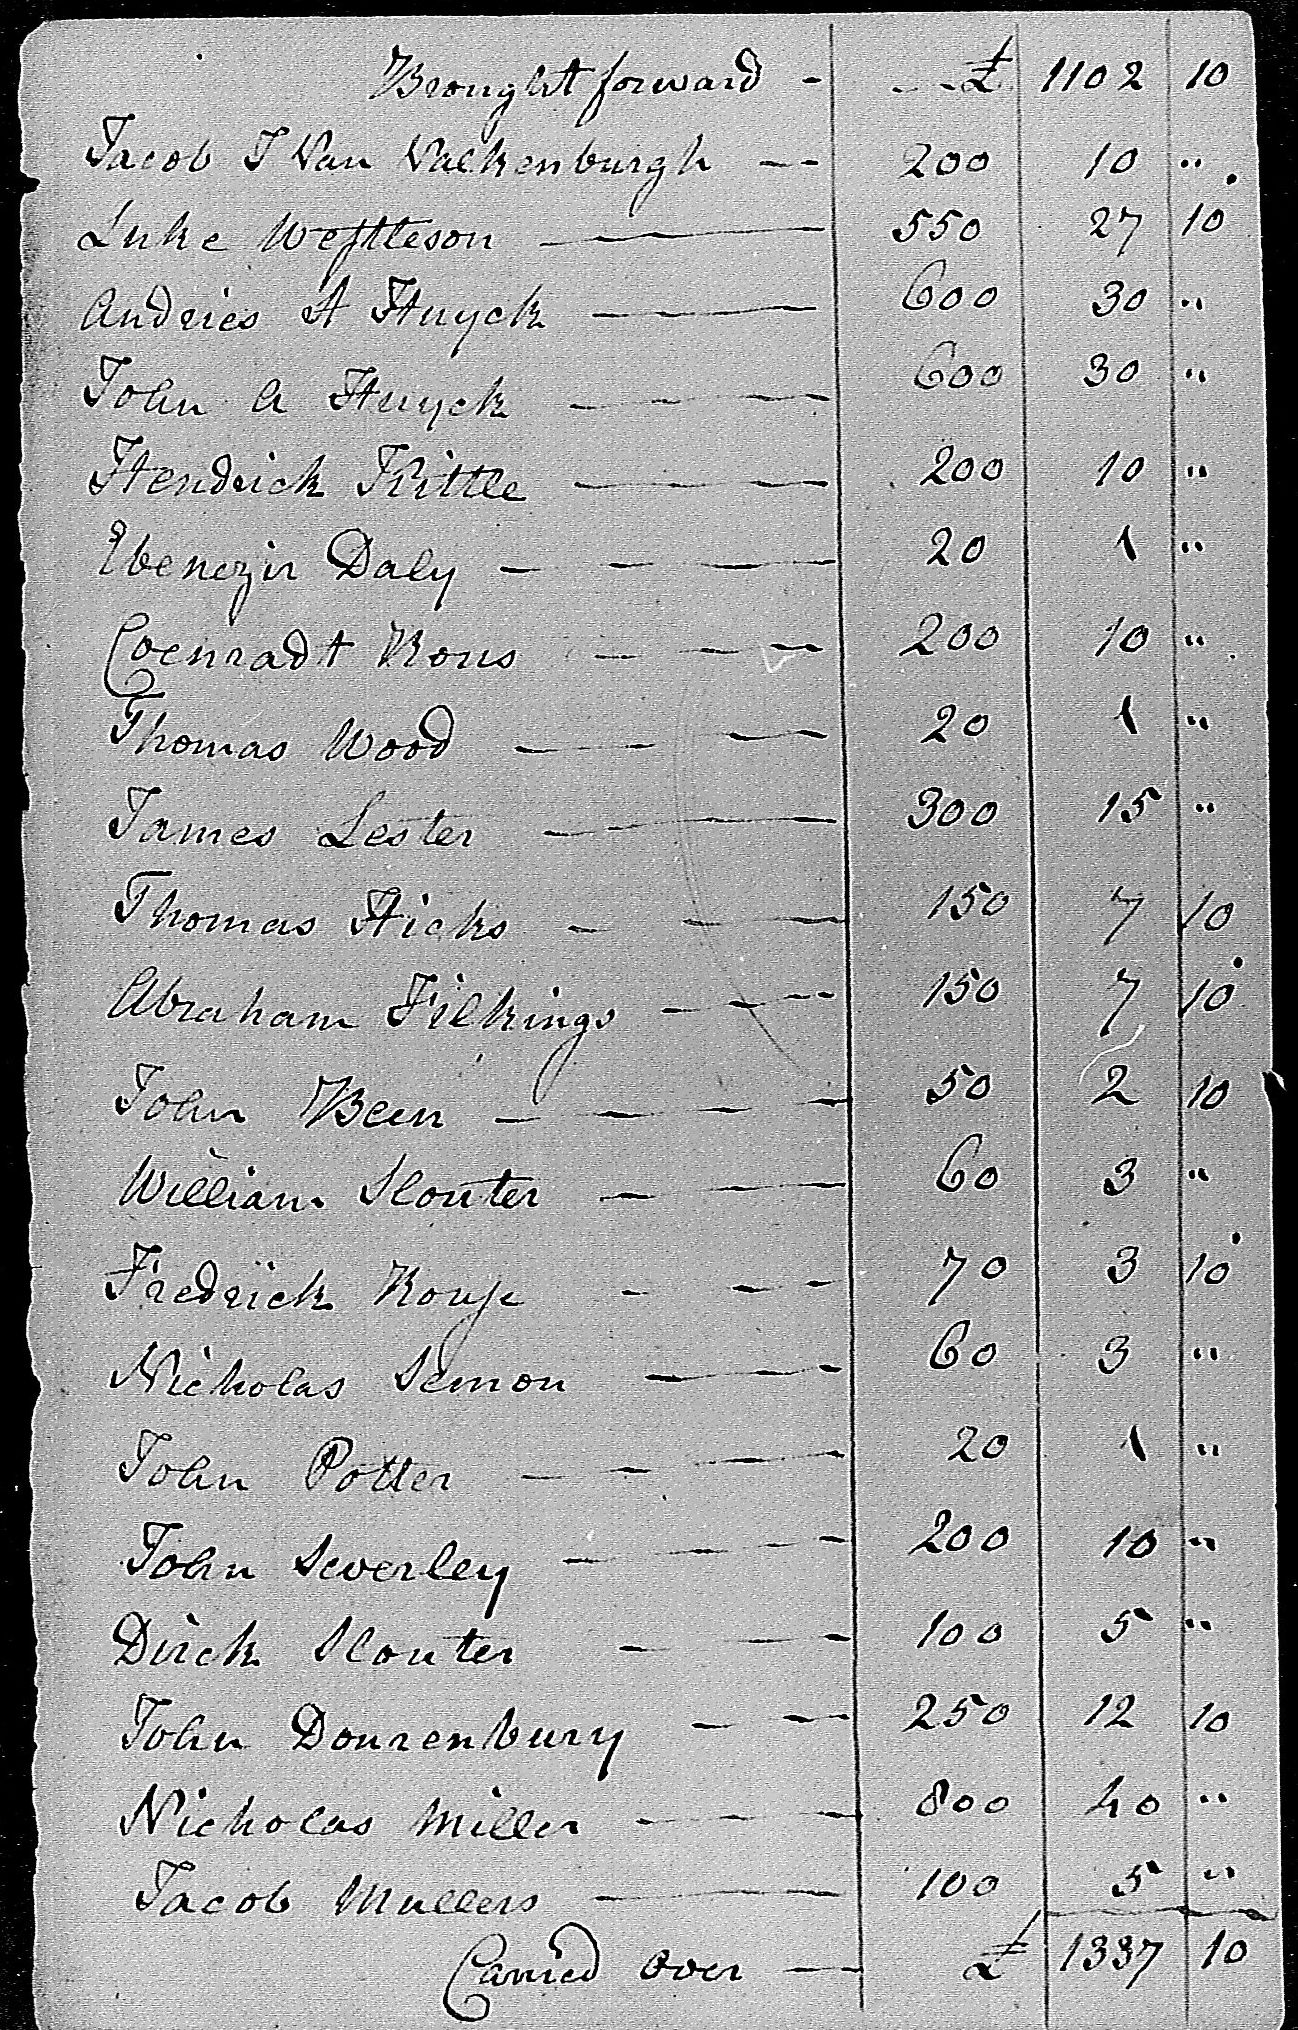 Brought forward - £ 1102 10
Jacob J Van Valkenburgh 200 10 "
Luke Weſttleson 550 27 10
Andries A Huyck 600 30 "
John A Huyck 600 30 "
Hendrick Kittle 200 10 "
Ebenezir Daly 20 1 "
Coenradt Rous 200 10 "
Thomas Wood 20 1 "
James Lester 300 15 "
Thomas Hicks 150 7 10
Abraham Filkings 150 7 10
John Been 50 2 10
William Slouter 60 3 "
Fredrick Rouſe 70 3 10
Nicholas Semon 60 3 "
John Potter 20 1 "
John Severley 200 10 "
Dirck Slouter 100 5 "
John Dourenbury 250 12 10
Nicholas Miller 800 40 "
Jacob Mullers 100 5 "
Carried over £ 1337 10